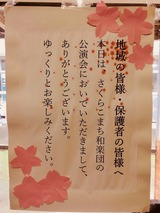 地域の皆様・保護者の皆様へ
本日は、さくらこまち和楽団の
公演会においでいただきまして、
ありがとうございます。
ゆっくりとお楽しみください。